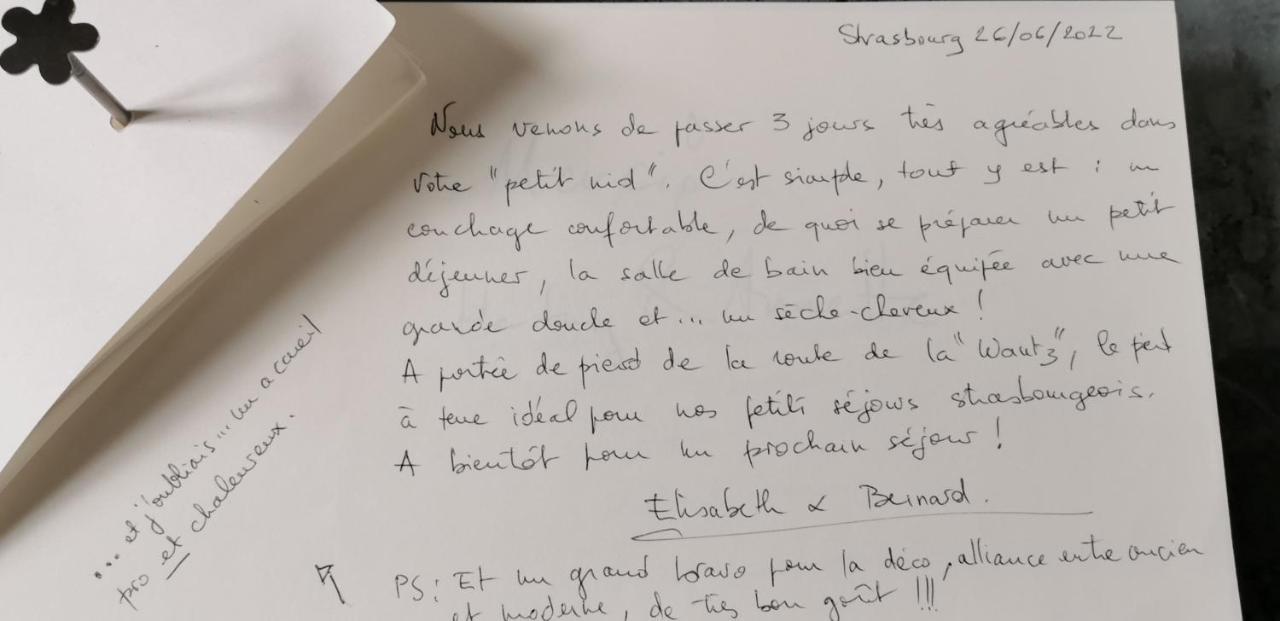 Strasbourg 26/06/2022
Nous venons de passer 3 jours très agréables dans
votre "petit nid". C'est simple, tout y est : un
couchage confortable, de quoi se préparer un petit
déjeuner, la salle de bain bien équipée avec une
grande douche et... un sèche-cheveux !
A portée de pied de la route de la "Wantz", le pied
à terre idéal pour nos petits séjours strasbourgeois.
A bientôt pour un prochain séjour !
Elisabeth & Bernard.
PS : Et un grand bravo pour la déco, alliance entre ancien
et moderne, de très bon goût !!!
... et j'oubliais... un accueil
pro et chaleureux.